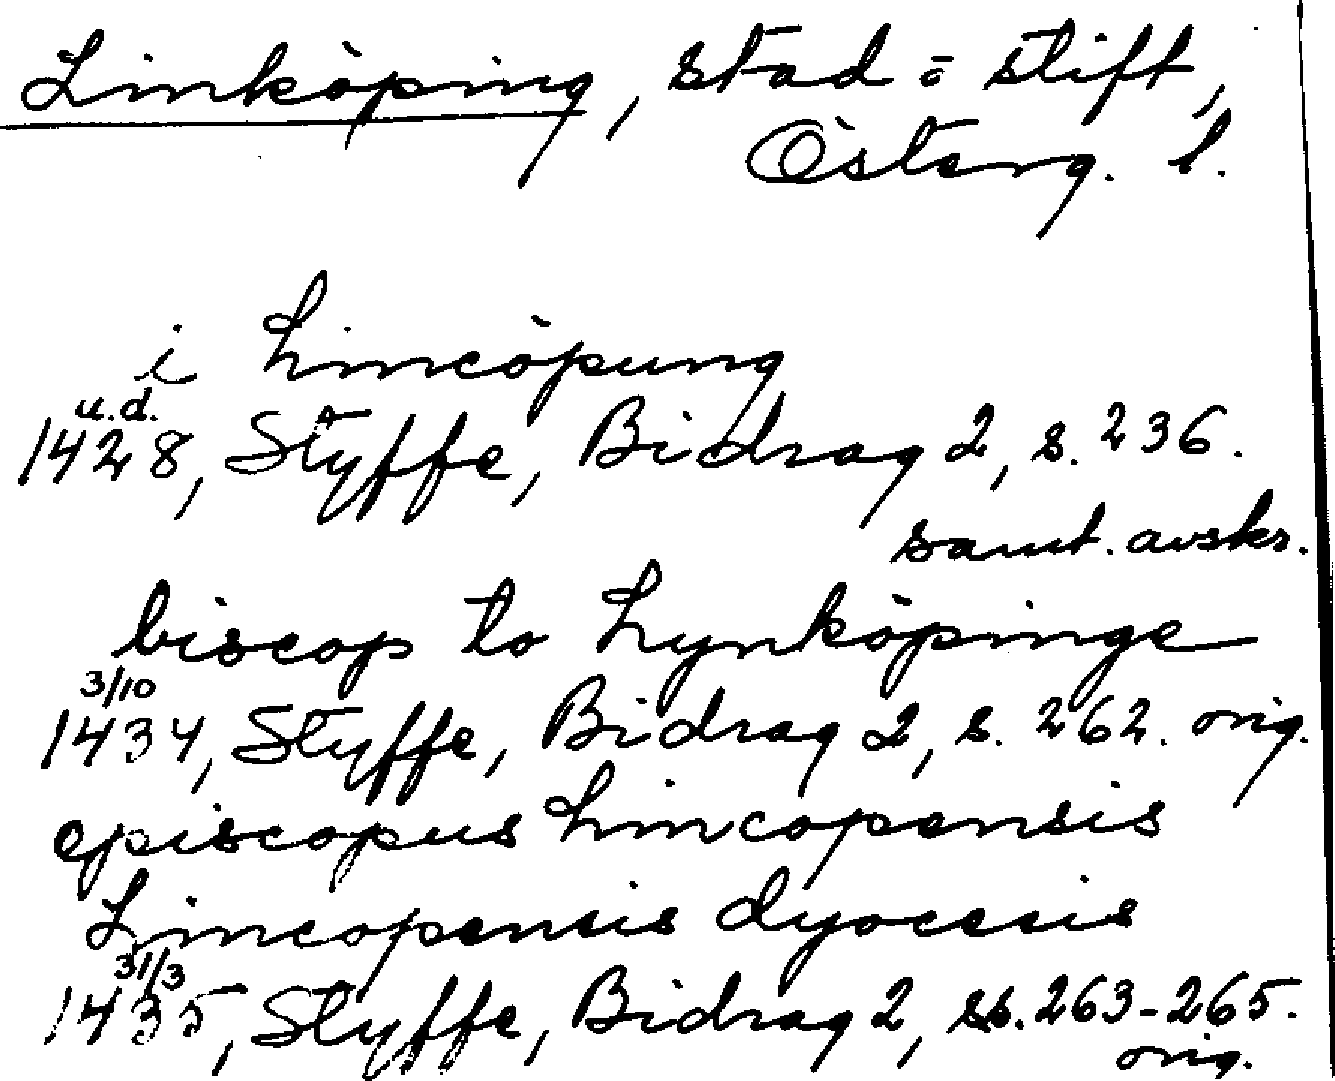 Linköping, stad o stift,
Österg. l.
i Lincöpung
u.d.
1428, Styffe, Bidrag 2, s. 236.
samt. avskr.
biscop to Lynköpinge
3/10
1434, Styffe, Bidrag 2, s. 262. orig.
episcopus Lincopensis
Lincopensis dyocesis
31/3
1435, Styffe, Bidrag 2, ss. 263-265.
orig.